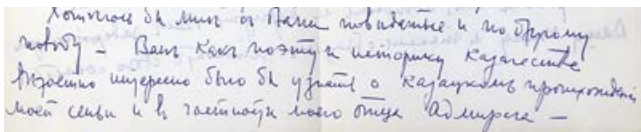 Хотѣлось бы мнѣ съ Вами повидаться и по другому
поводу – Вамъ какъ поэту и историку казачества
вѣроятно интересно было бы узнать о казацкомъ происхожденіи
моей семьи и въ частности моего отца Адмирала –